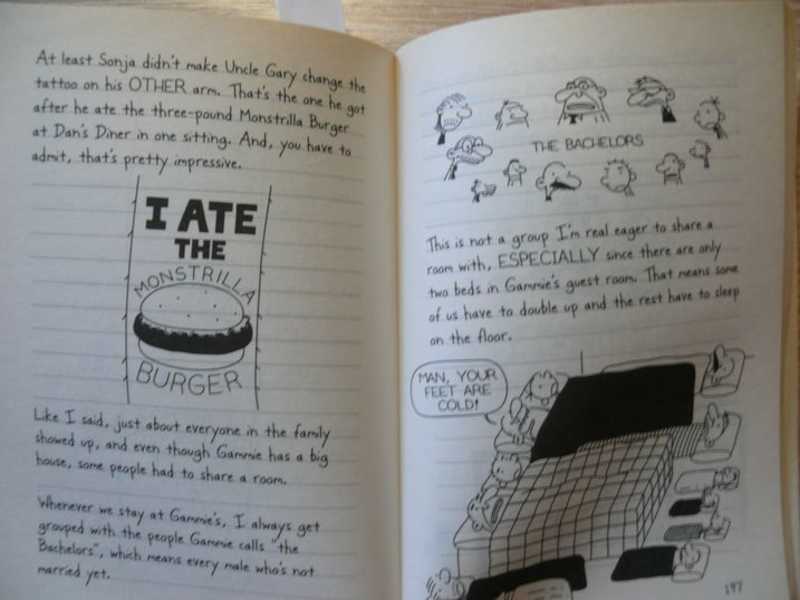 At least Sonja didn't make Uncle Gary change the
tattoo on his OTHER arm. That's the one he got
after he ate the three-pound Monstrilla Burger
at Dan's Diner in one sitting. And, you have to
admit, that's pretty impressive.
I ATE
THE
MONSTRILLA
BURGER
Like I said, just about everyone in the family
showed up, and even though Gammie has a big
house, some people had to share a room.
Whenever we stay at Gammie's, I always get
grouped with the people Gammie calls "the
Bachelors", which means every male who's not
married yet.
THE BACHELORS
This is not a group I'm real eager to share a
room with, ESPECIALLY since there are only
two beds in Gammie's guest room. That means some
of us have to double up and the rest have to sleep
on the floor.
MAN, YOUR
FEET ARE
COLD!
197